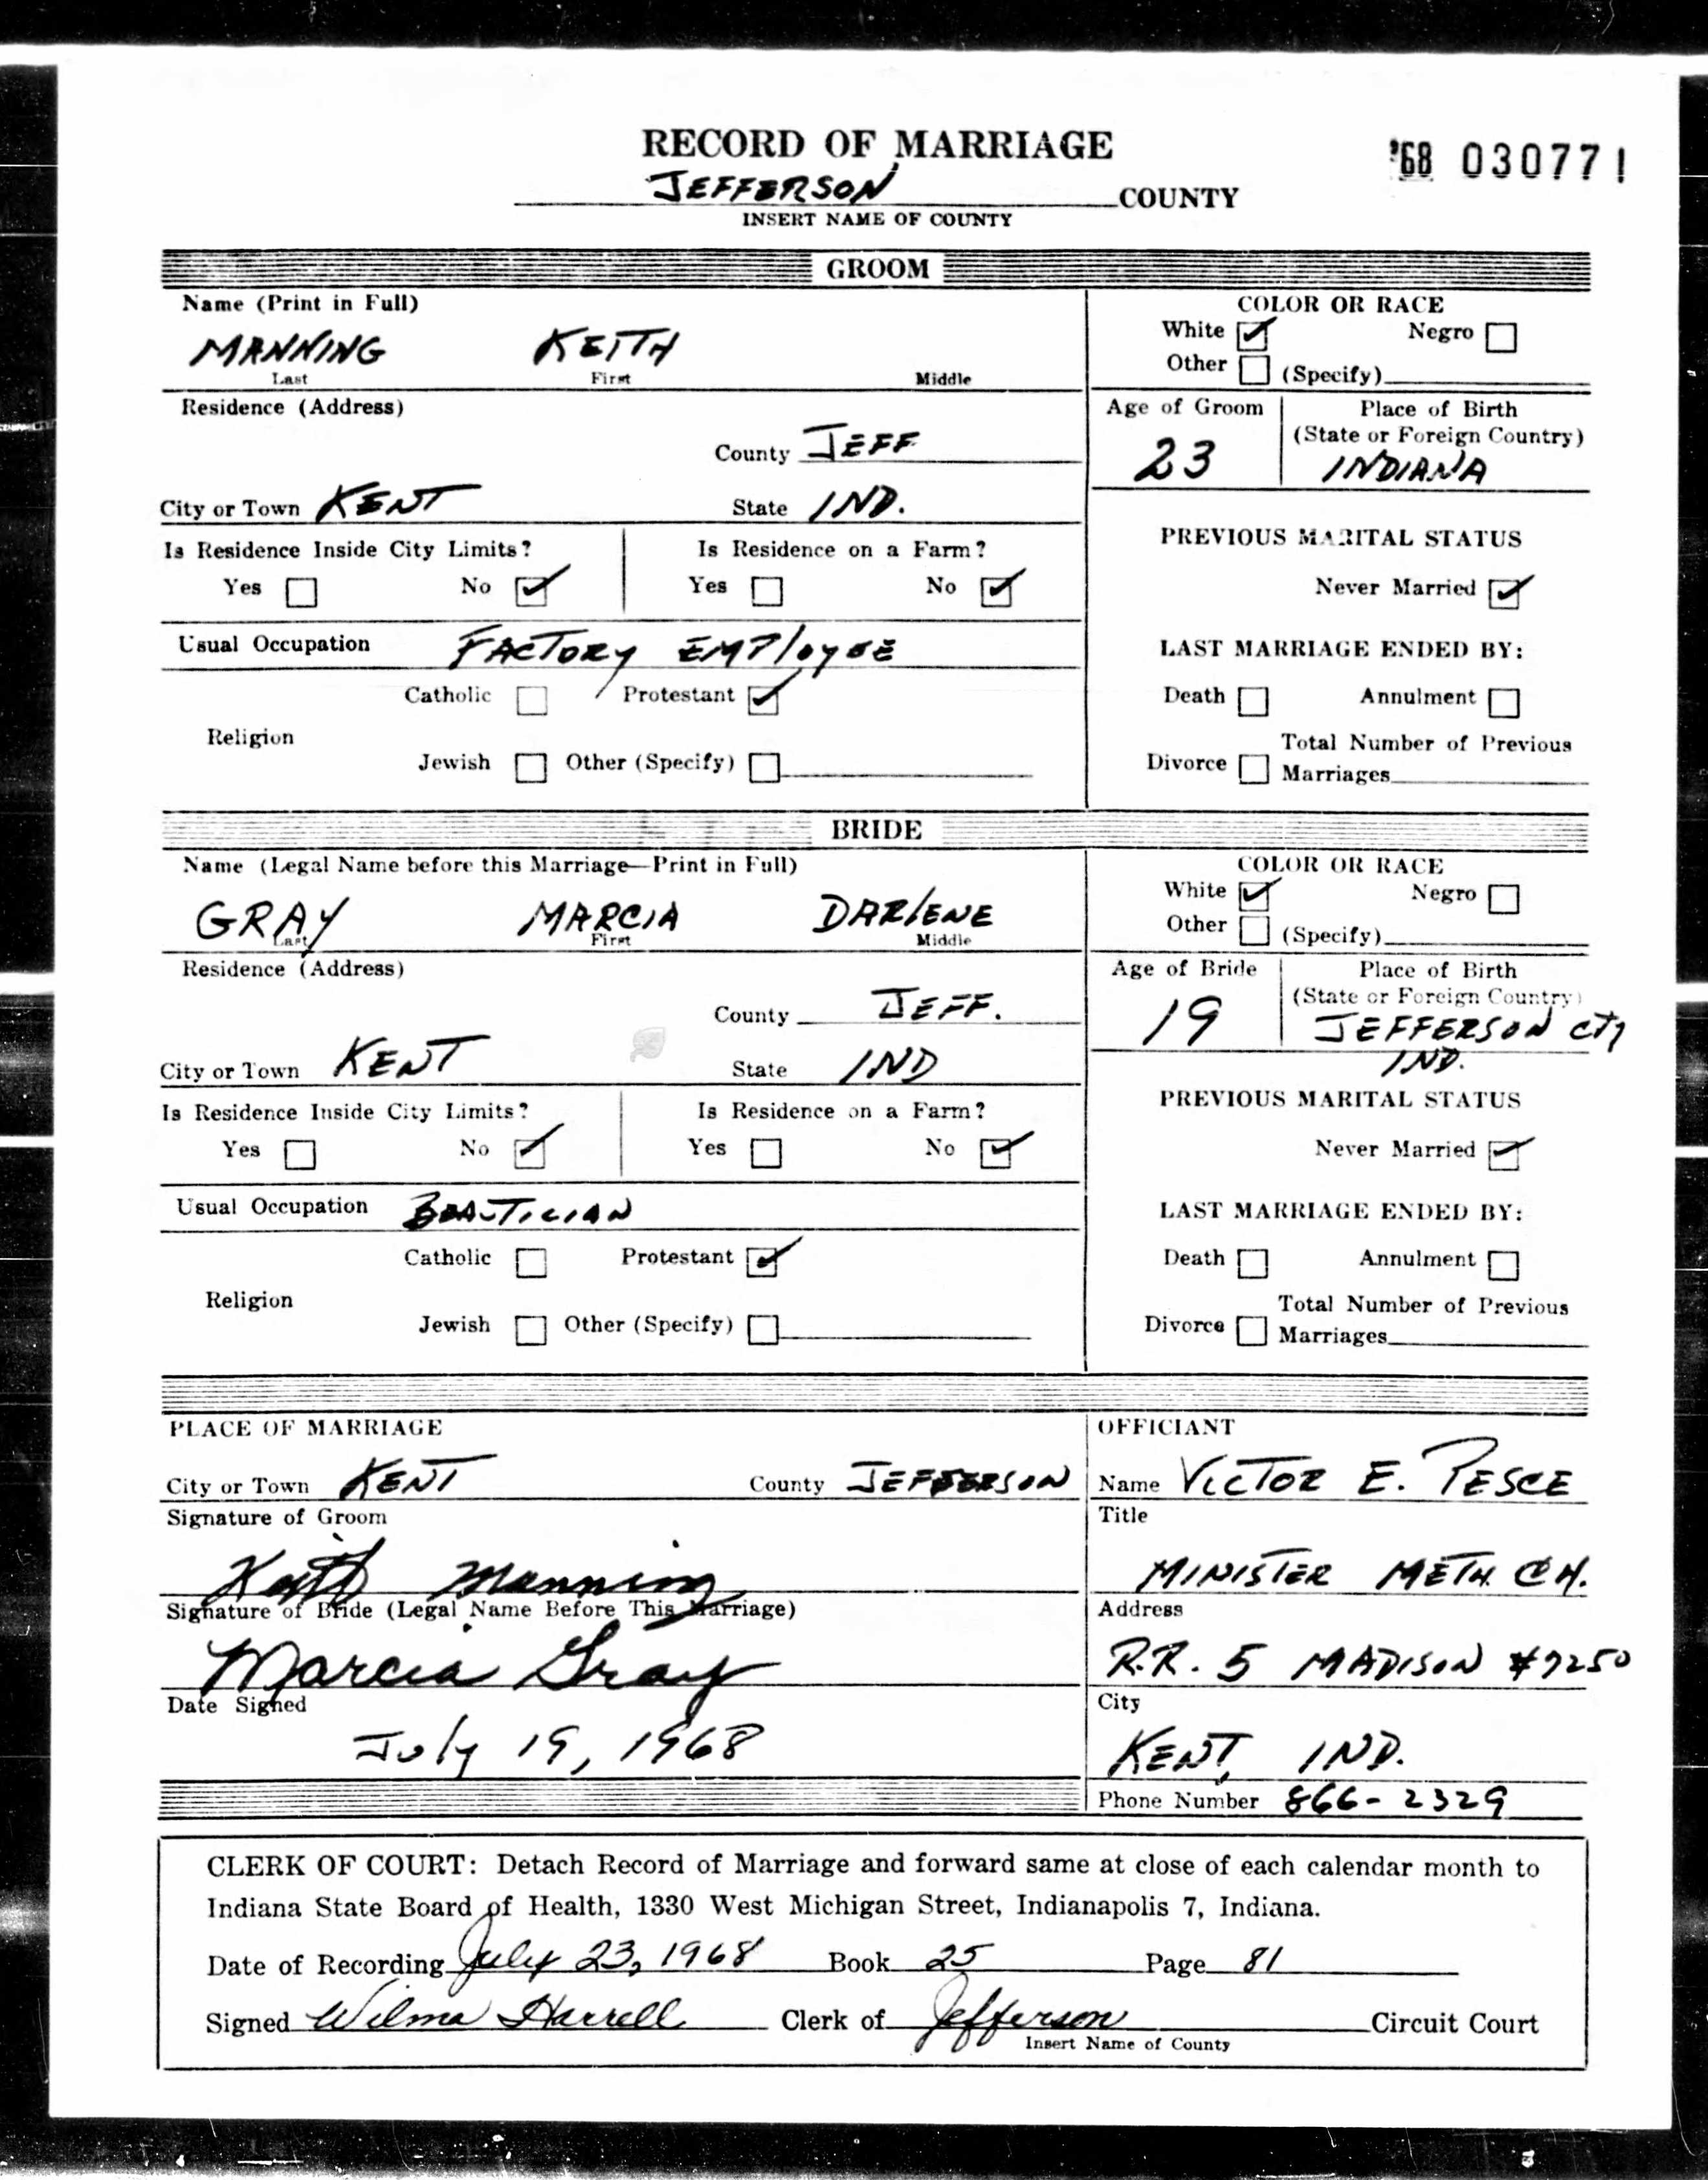 RECORD OF MARRIAGE
'68 030771
JEFFERSON COUNTY
INSERT NAME OF COUNTY
GROOM
Name (Print in Full)
MANNING KEITH
Last First Middle
COLOR OR RACE
White ☑ Negro ☐
Other ☐ (Specify)
Residence (Address)
County JEFF
City or Town KENT State IND.
Age of Groom
23
Place of Birth
(State or Foreign Country)
INDIANA
Is Residence Inside City Limits?
Yes ☐ No ☑
Is Residence on a Farm?
Yes ☐ No ☑
PREVIOUS MARITAL STATUS
Never Married ☑
Usual Occupation FACTORY EMPloyEE
LAST MARRIAGE ENDED BY:
Catholic ☐ Protestant ☑
Religion
Jewish ☐ Other (Specify) ☐
Death ☐ Annulment ☐
Total Number of Previous
Divorce ☐ Marriages
BRIDE
Name (Legal Name before this Marriage—Print in Full)
GRAY MARCIA DARlENE
Last First Middle
COLOR OR RACE
White ☑ Negro ☐
Other ☐ (Specify)
Residence (Address)
County JEFF.
City or Town KENT State IND
Age of Bride
19
Place of Birth
(State or Foreign Country)
JEFFERSON CTY
IND.
Is Residence Inside City Limits?
Yes ☐ No ☑
Is Residence on a Farm?
Yes ☐ No ☑
PREVIOUS MARITAL STATUS
Never Married ☑
Usual Occupation BEAUTICIAN
LAST MARRIAGE ENDED BY:
Catholic ☐ Protestant ☑
Religion
Jewish ☐ Other (Specify) ☐
Death ☐ Annulment ☐
Total Number of Previous
Divorce ☐ Marriages
PLACE OF MARRIAGE
City or Town KENT County JEFFERSON
Signature of Groom
Keith Manning
Signature of Bride (Legal Name Before This Marriage)
Marcia Gray
Date Signed
July 19, 1968
OFFICIANT
Name VICTOR E. PESCE
Title
MINISTER METH. CH.
Address
R.R. 5 MADISON 47250
City
KENT, IND.
Phone Number 866-2329
CLERK OF COURT: Detach Record of Marriage and forward same at close of each calendar month to
Indiana State Board of Health, 1330 West Michigan Street, Indianapolis 7, Indiana.
Date of Recording July 23, 1968 Book 25 Page 81
Signed Wilma Harrell Clerk of Jefferson Circuit Court
Insert Name of County